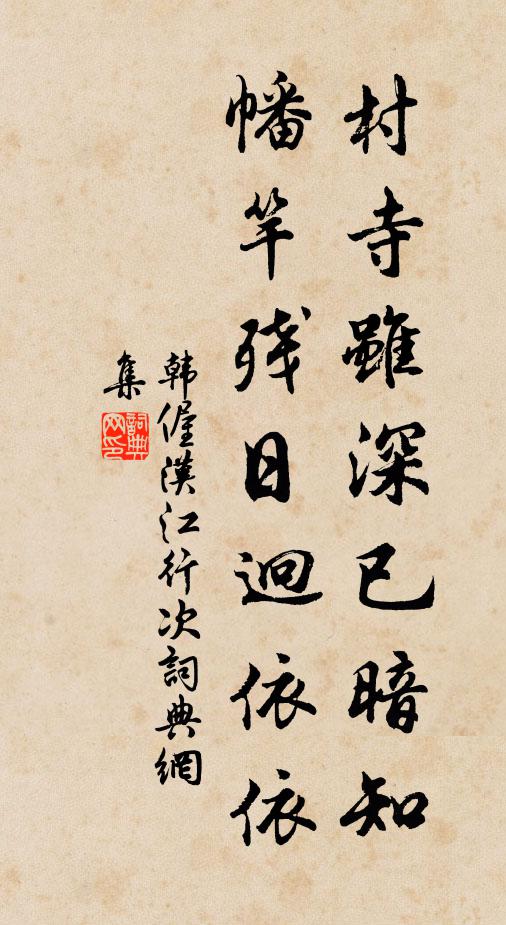 村寺雖深已暗知
幡竿殘日迥依依
韩偓漢江行次詞典網
集
詞典網印